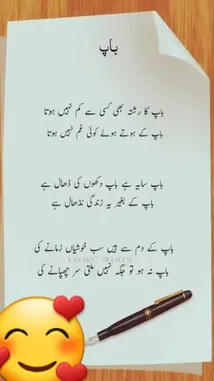 باپ
باپ کا رشتہ بھی کسی سے کم نہیں ہوتا
باپ کے ہوتے ہوئے کوئی غم نہیں ہوتا
باپ سایہ ہے باپ دکھوں کی ڈھال ہے
باپ کے بغیر یہ زندگی نڈھال ہے
باپ کے دم سے ہیں سب خوشیاں زمانے کی
باپ نہ ہو تو جگہ نہیں ملتی سر چھپانے کی